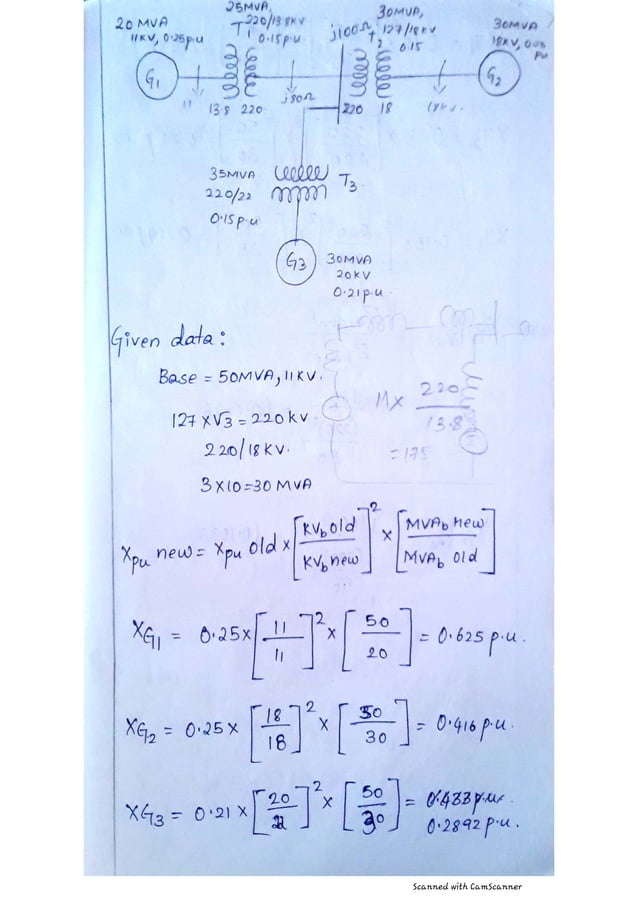 20 MVA
11KV, 0.25p.u
25MVA,
T1 220/13.8KV
0.15p.u
j100Ω
T2
30MVA,
127/18KV
0.15
30MVA
18KV, 0.25
pu
G1
G2
11
13.8 220
j80Ω
220 18
18KV.
35MVA
220/22
0.15p.u
T3
G3
30MVA
20KV
0.21p.u.
Given data:
Base = 50MVA, 11KV.
127 x√3 = 220 kv.
220/18KV.
3x10=30 MVA
11x 220/13.8
=175
Xpu new = Xpu old x [KVb old/KVb new]² x [MVAb new/MVAb old]
XG1 = 0.25x[11/11]² x [50/20] = 0.625 p.u.
XG2 = 0.25 x [18/18]² x [50/30] = 0.416 p.u.
XG3 = 0.21 x [20/22]² x [50/30] = 0.433 p.u.
0.2892 p.u.
Scanned with CamScanner